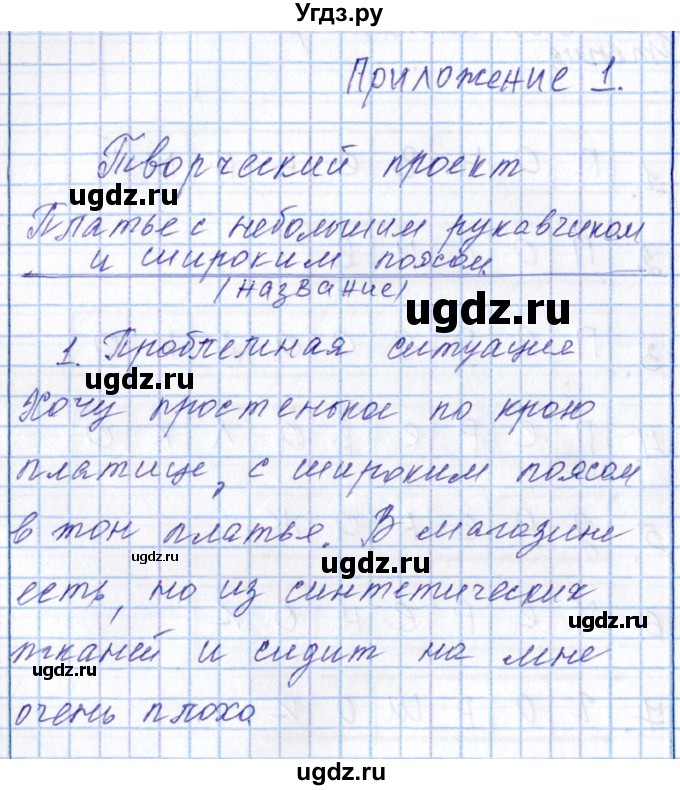 Угдз.ру
Приложение 1.
Творческий проект
Платье с небольшим рукавчиком
и широким поясом
(название)
1. Проблемная ситуация
Хочу простенькое по крою
платице, с широким поясом
в тон платья. В магазине
есть, но из синтетических
тканей и сидит на мне
очень плохо
ugdz.ru
ugdz.ru
ugdz.ru
ugdz.ru
ugdz.ru
ugdz.ru
ugdz.ru
ugdz.ru
ugdz.ru
ugdz.ru